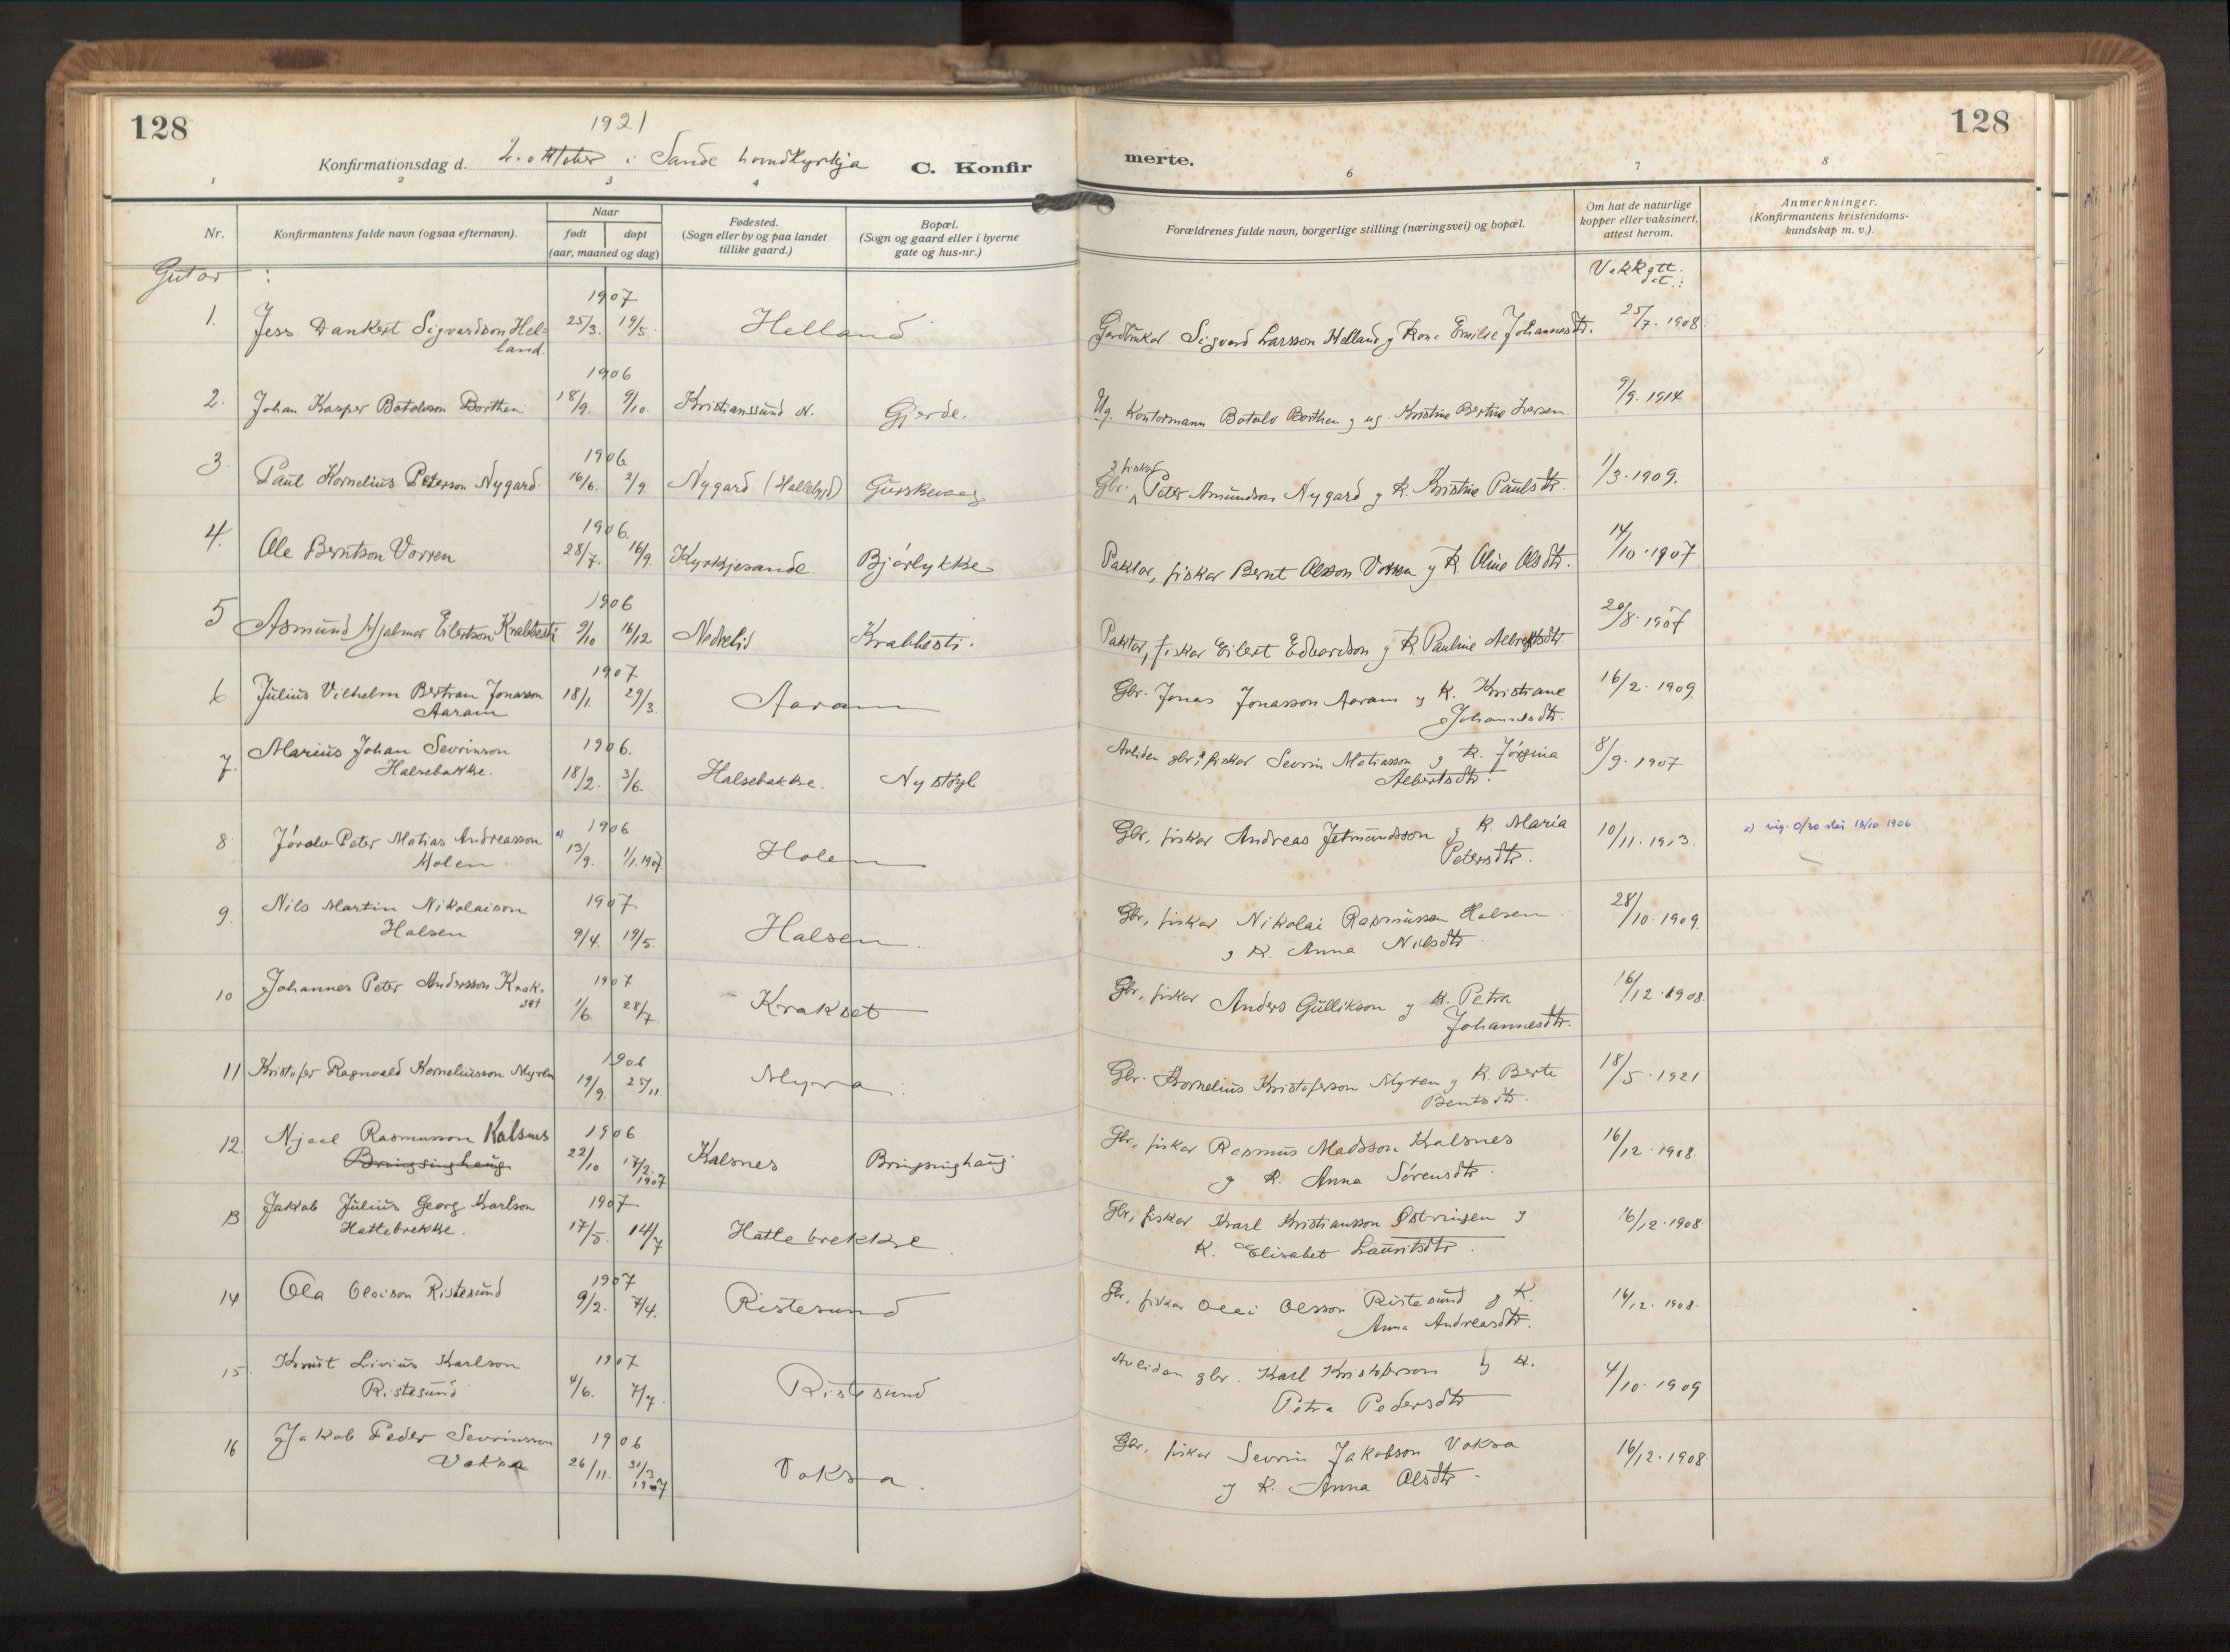 128
1921
128
Konfirmationsdag d. 2. oktober i Sande hovudkyrkja
C. Konfir
merte.
1 2 3 4 6 7 8
Nr.
Konfirmantens fulde navn (ogsaa efternavn).
Naar
født døpt
(aar, maaned og dag)
Fødested.
(Sogn eller by og paa landet
tillike gaard.)
Bopæl.
(Sogn og gaard eller i byerne
gate og hus-nr.)
Forældrenes fulde navn, borgerlige stilling (næringsvei) og bopæl.
Om hat de naturlige
kopper eller vaksinert,
attest herom.
Anmerkninger.
(Konfirmantens kristendoms-
kundskap m. v.).
Gutar :
1907
1. Jess Dankert Sigvardson Hel-
land. 25/3. 19/5. Helland Gardbrukar Sigvard Larsson Helland g kone Emilie Johannesdtr. 25/7. 1908.
1906
2. Johan Kasper Botolvson Borthen 18/9. 9/10. Kristianssund N. Gjerde. Ug. Kontormann Botolv Borthen g ug. Kristine Bertine Iversen. 9/9. 1914
1906
3. Paul Kornelius Peterson Nygard 16/6. 2/9. Nygard (Hallebygd) Gurskevaag Gbr. g fiskar Peter Amundson Nygard g K. Kristine Paulsdtr. 1/3. 1909.
1906.
4. Ole Berntson Vorren 28/7. 16/9. Kyrkjesande. Bjórlykke Paktar, fiskar Bernt Olsson Vorren g K. Oline Olsdtr. 14/10. 1907
1906
5 Asmund Hjalmar Eilertson Krabbesti 9/10 16/12 Nedrelid Krabbesti. Paktar, fiskar Eilert Edvardson g K. Pauline Albrektsdtr 20/8. 1907
1907
6 Julius Vilhelm Bertram Jonasson
Aaram 18/1. 29/3. Aaram Gbr. Jonas Jonasson Aaram g K. Kristiane
Johannesdtr. 16/2. 1909.
7. Marius Johan Sevrinson
Halsebakke. 1906. 18/2. 3/6. Halsebakke. Nystóyl Avliden gbr, fiskar Sevrin Matiasson g K. Jórgina
Albertsdtr. 8/9. 1907
1906
8. Jórolv Peter Matias Andreasson
Holen 13/9. 1/1. 1907. Holen Gbr, fiskar Andreas Jetmundsson g K. Maria
Petersdtr. 10/11. 1913. 13/10 1906
9. Nils Martin Nikolaison
Halsen 1907. 9/4. 19/5. Halsen. Gbr, fiskar Nikolai Rasmusson Halsen
g K. Anna Nilsdtr. 28/10. 1909.
10 Johannes Peter Andersson Krak-
set 1907 1/6. 28/7 Krakset Gbr, fiskar Anders Gullikson g K. Petra
Johannesdtr. 16/12. 1908.
1906
11 Kristofer Ragnvald Korneliusson Myren 19/9. 25/11. Myra. Gbr. Kornelius Kristoferson Myren g K. Berte
Bentsdtr. 18/5. 1921
12. Njaal Rasmusson Kalsnes
Bringsinghaug 1906 22/10 17/2. 1907 Kalsnes Bringsinghaug Gbr, fiskar Rasmus Madsson Kalsnes
g K. Anna Sórensdtr. 16/12. 1908.
13 Jakob Julius Georg Karlson
Hattebrekke. 1907 17/5. 14/7 Hattebrekke. Gbr, fiskar Karl Kristiansson g
K. Elisabet Lauritsdtr. 16/12. 1908.
14 Ola Olaison Ristesund 1907 9/2. 7/4. Ristesund Gbr, fiskar Olai Olsson Ristesund g K.
Anna Andreasdtr. 16/12. 1908.
15. Knut Livius Karlson
Ristesund 1907 4/6. 7/7. Ristesund Avliden gbr. Karl Kristoferson g K.
Petra Pedersdtr 4/10. 1909
16 Jakob Peder Sevrinsson
Voksa 1906 26/11. 31/3 1907 Voksa. Gbr, fiskar Sevrin Jakobson Voksa
g K. Anna Olsdtr. 16/12. 1908.